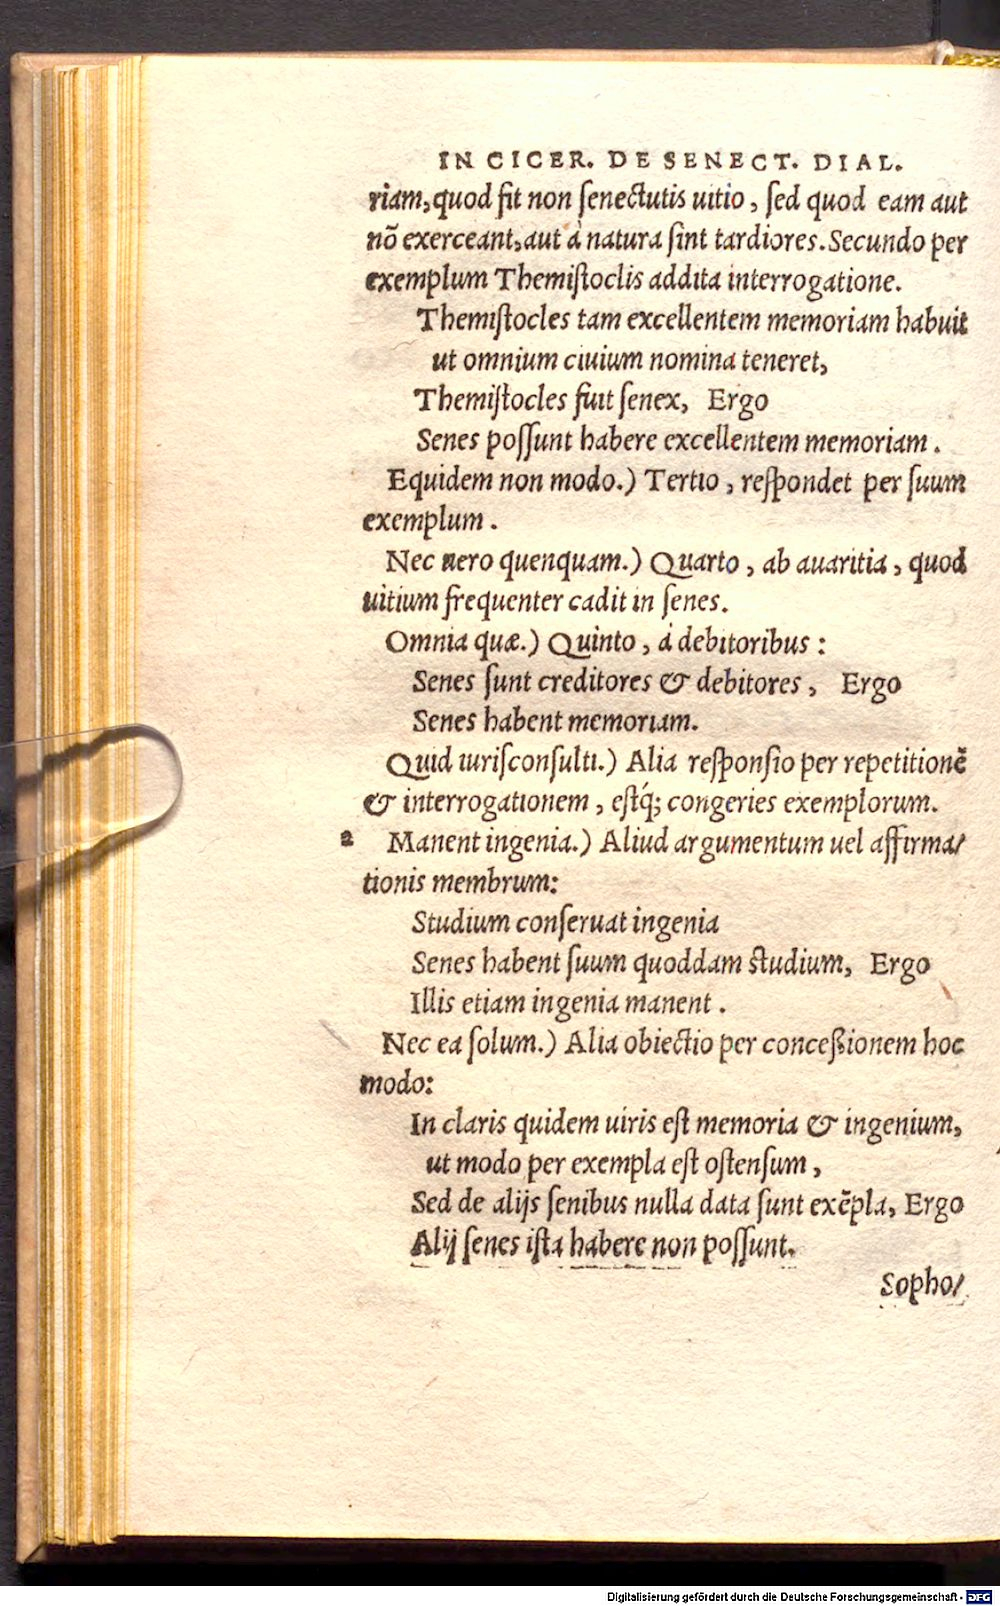 IN CICER. DE SENECT. DIAL.
riam, quod fit non ſenectutis uitio, ſed quod eam aut
nõ exerceant, aut à natura ſint tardiores. Secundo per
exemplum Themiſtoclis addita interrogatione.
Themiſtocles tam excellentem memoriam habuit
ut omnium ciuium nomina teneret,
Themiſtocles fuit ſenex, Ergo
Senes poſſunt habere excellentem memoriam.
Equidem non modo.) Tertio, reſpondet per ſuum
exemplum.
Nec uero quenquam.) Quarto, ab auaritia, quod
uitium frequenter cadit in ſenes.
Omnia quæ.) Quinto, à debitoribus:
Senes ſunt creditores & debitores, Ergo
Senes habent memoriam.
Quid iuriſconſulti.) Alia reſponſio per repetitionẽ
& interrogationem, eſtq́; congeries exemplorum.
2 Manent ingenia.) Aliud argumentum uel affirma/
tionis membrum:
Studium conſeruat ingenia
Senes habent ſuum quoddam ſtudium, Ergo
Illis etiam ingenia manent.
Nec ea ſolum.) Alia obiectio per conceßionem hoc
modo:
In claris quidem uiris eſt memoria & ingenium,
ut modo per exempla eſt oſtenſum,
Sed de alijs ſenibus nulla data ſunt exẽpla, Ergo
Alij ſenes iſta habere non poſſunt.
Sopho/
Digitalisierung gefördert durch die Deutsche Forschungsgemeinschaft - DFG